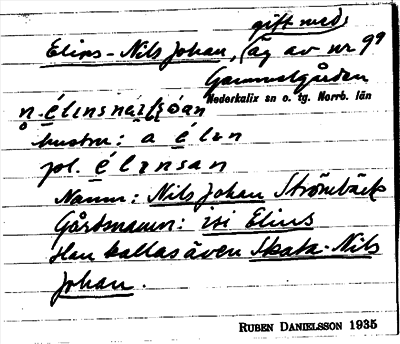 gift med
Elins-Nils Johan, äg av nr 99
Gammelgården
Nederkalix sn o. tg. Norrb. län
hustru: a élɪn
pl. élɪnsan
Namn: Nils Johan Strömbäck
Gårdsnamn: isi Elins
Han kallas även Skata-Nils
Johan.
RUBEN DANIELSSON 1935